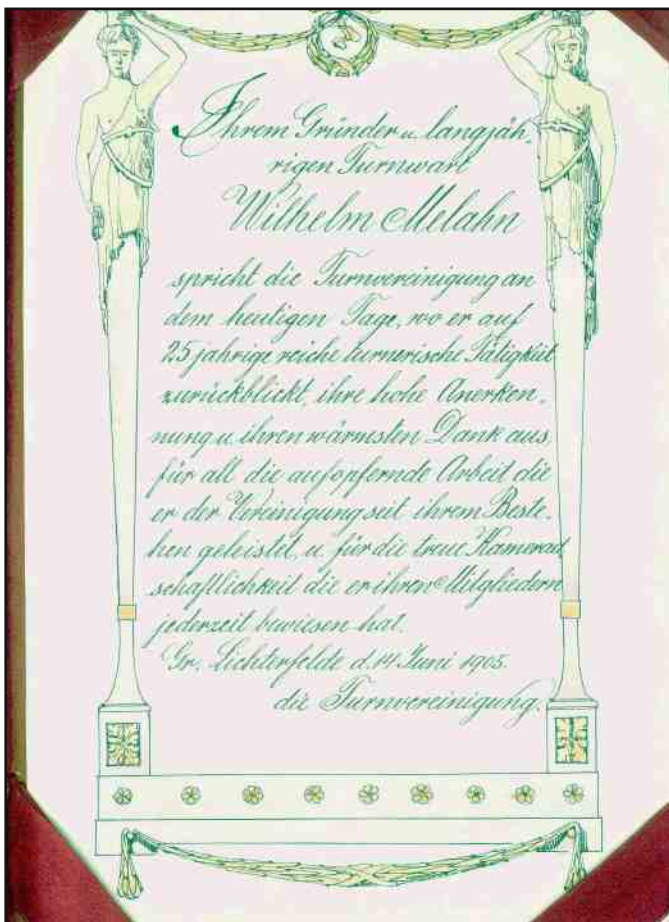 Ihrem Gründer u. langjäh-
rigen Turnwart
Wilhelm Melahn
spricht die Turnvereinigung an
dem heutigen Tage, wo er auf
25 jahrige reiche turnerische Tätigkeit
zurückblickt, ihre hohe Anerken-
nung u. ihren wärmsten Dank aus,
für all die aufopfernde Arbeit die
er der Vereinigung seit ihrem Beste-
hen geleistet, u. für die treue Kamerad
schaftlichkeit die er ihren Mitgliedern
jederzeit bewiesen hat.
Gr. Lichterfelde d. 14 Juni 1905.
die Turnvereinigung.